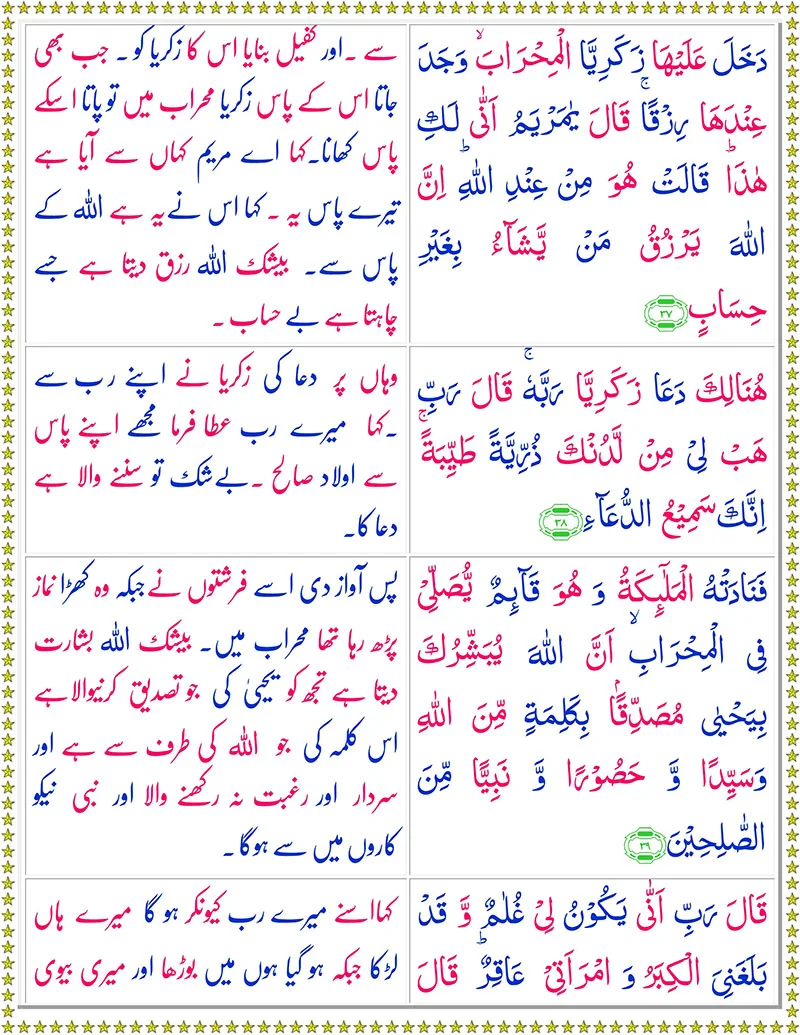 دَخَلَ عَلَيْهَا زَكَرِيَّا الْمِحْرَابَ ۙ وَجَدَ
عِنْدَهَا رِزْقًا ۚ قَالَ يٰمَرْيَمُ اَنّٰى لَكِ
هٰذَا ؕ قَالَتْ هُوَ مِنْ عِنْدِ اللّٰهِ ؕ اِنَّ
اللّٰهَ يَرْزُقُ مَنْ يَّشَآءُ بِغَيْرِ
حِسَابٍ ۳۷
سے ۔اور کفیل بنایا اس کا زکریا کو ۔ جب بھی
جاتا اس کے پاس زکریا محراب میں تو پاتا اسکے
پاس کھانا۔کہا اے مریم کہاں سے آیا ہے
تیرے پاس یہ ۔ کہا اس نے یہ ہے اللہ کے
پاس سے۔ بیشک اللہ رزق دیتا ہے جسے
چاہتا ہے بے حساب ۔
هُنَالِكَ دَعَا زَكَرِيَّا رَبَّهٗ ۚ قَالَ رَبِّ
هَبْ لِیْ مِنْ لَّدُنْكَ ذُرِّيَّةً طَيِّبَةً ۚ
اِنَّكَ سَمِيْعُ الدُّعَآءِ ۳۸
وہاں پر دعا کی زکریا نے اپنے رب سے
۔کہا میرے رب عطا فرما مجھے اپنے پاس
سے اولاد صالح ۔بے شک تو سننے والا ہے
دعا کا۔
فَنَادَتْهُ الْمَلٰٓئِكَةُ وَ هُوَ قَآئِمٌ يُّصَلِّیْ
فِی الْمِحْرَابِ ۙ اَنَّ اللّٰهَ يُبَشِّرُكَ
بِيَحْيٰى مُصَدِّقًۢا بِكَلِمَةٍ مِّنَ اللّٰهِ
وَسَيِّدًا وَّ حَصُوْرًا وَّ نَبِيًّا مِّنَ
الصّٰلِحِيْنَ ۳۹
پس آواز دی اسے فرشتوں نے جبکہ وہ کھڑا نماز
پڑھ رہا تھا محراب میں۔ بیشک اللہ بشارت
دیتا ہے تجھ کو یحییٰ کی جو تصدیق کرنیوالا ہے
اس کلمہ کی جو اللہ کی طرف سے ہے اور
سردار اور رغبت نہ رکھنے والا اور نبی نیکو
کاروں میں سے ہوگا ۔
قَالَ رَبِّ اَنّٰى يَكُوْنُ لِیْ غُلٰمٌ وَّ قَدْ
بَلَغَنِیَ الْكِبَرُ وَ امْرَاَتِیْ عَاقِرٌ ؕ قَالَ
کہا اسنے میرے رب کیونکر ہو گا میرے ہاں
لڑکا جبکہ ہو گیا ہوں میں بوڑھا اور میری بیوی